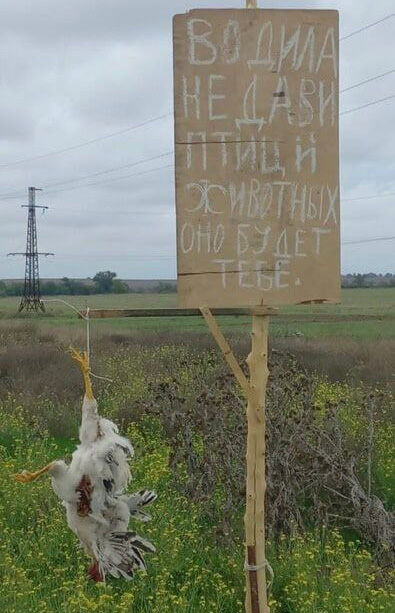 ВОДИЛА
НЕ ДАВИ
ПТИЦ И
ЖИВОТНЫХ
ОНО БУДЕТ
ТЕБЕ.